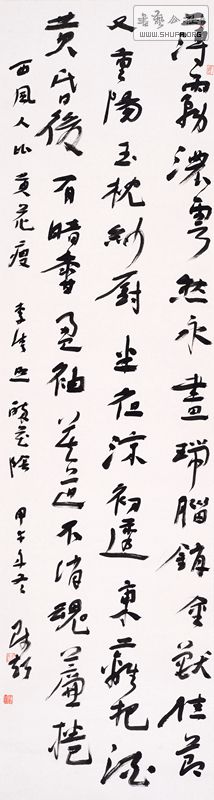 薄霧濃雲愁永晝瑞腦銷金獸佳節
又重陽玉枕紗厨半夜涼初透東籬把酒
黄昏後有暗香盈袖莫道不消魂簾捲
西風人比黄花瘦 李清照 醉花陰 甲午年冬
WWW.SHUFA.ORG